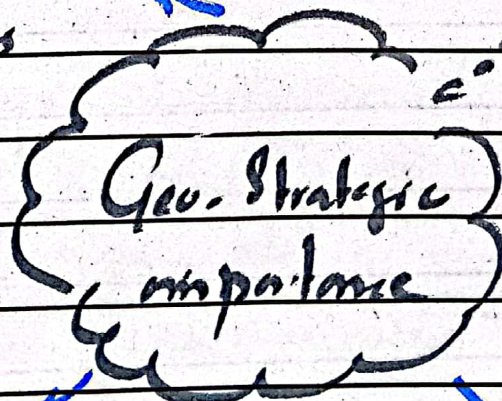 Geo. Strategic
importance